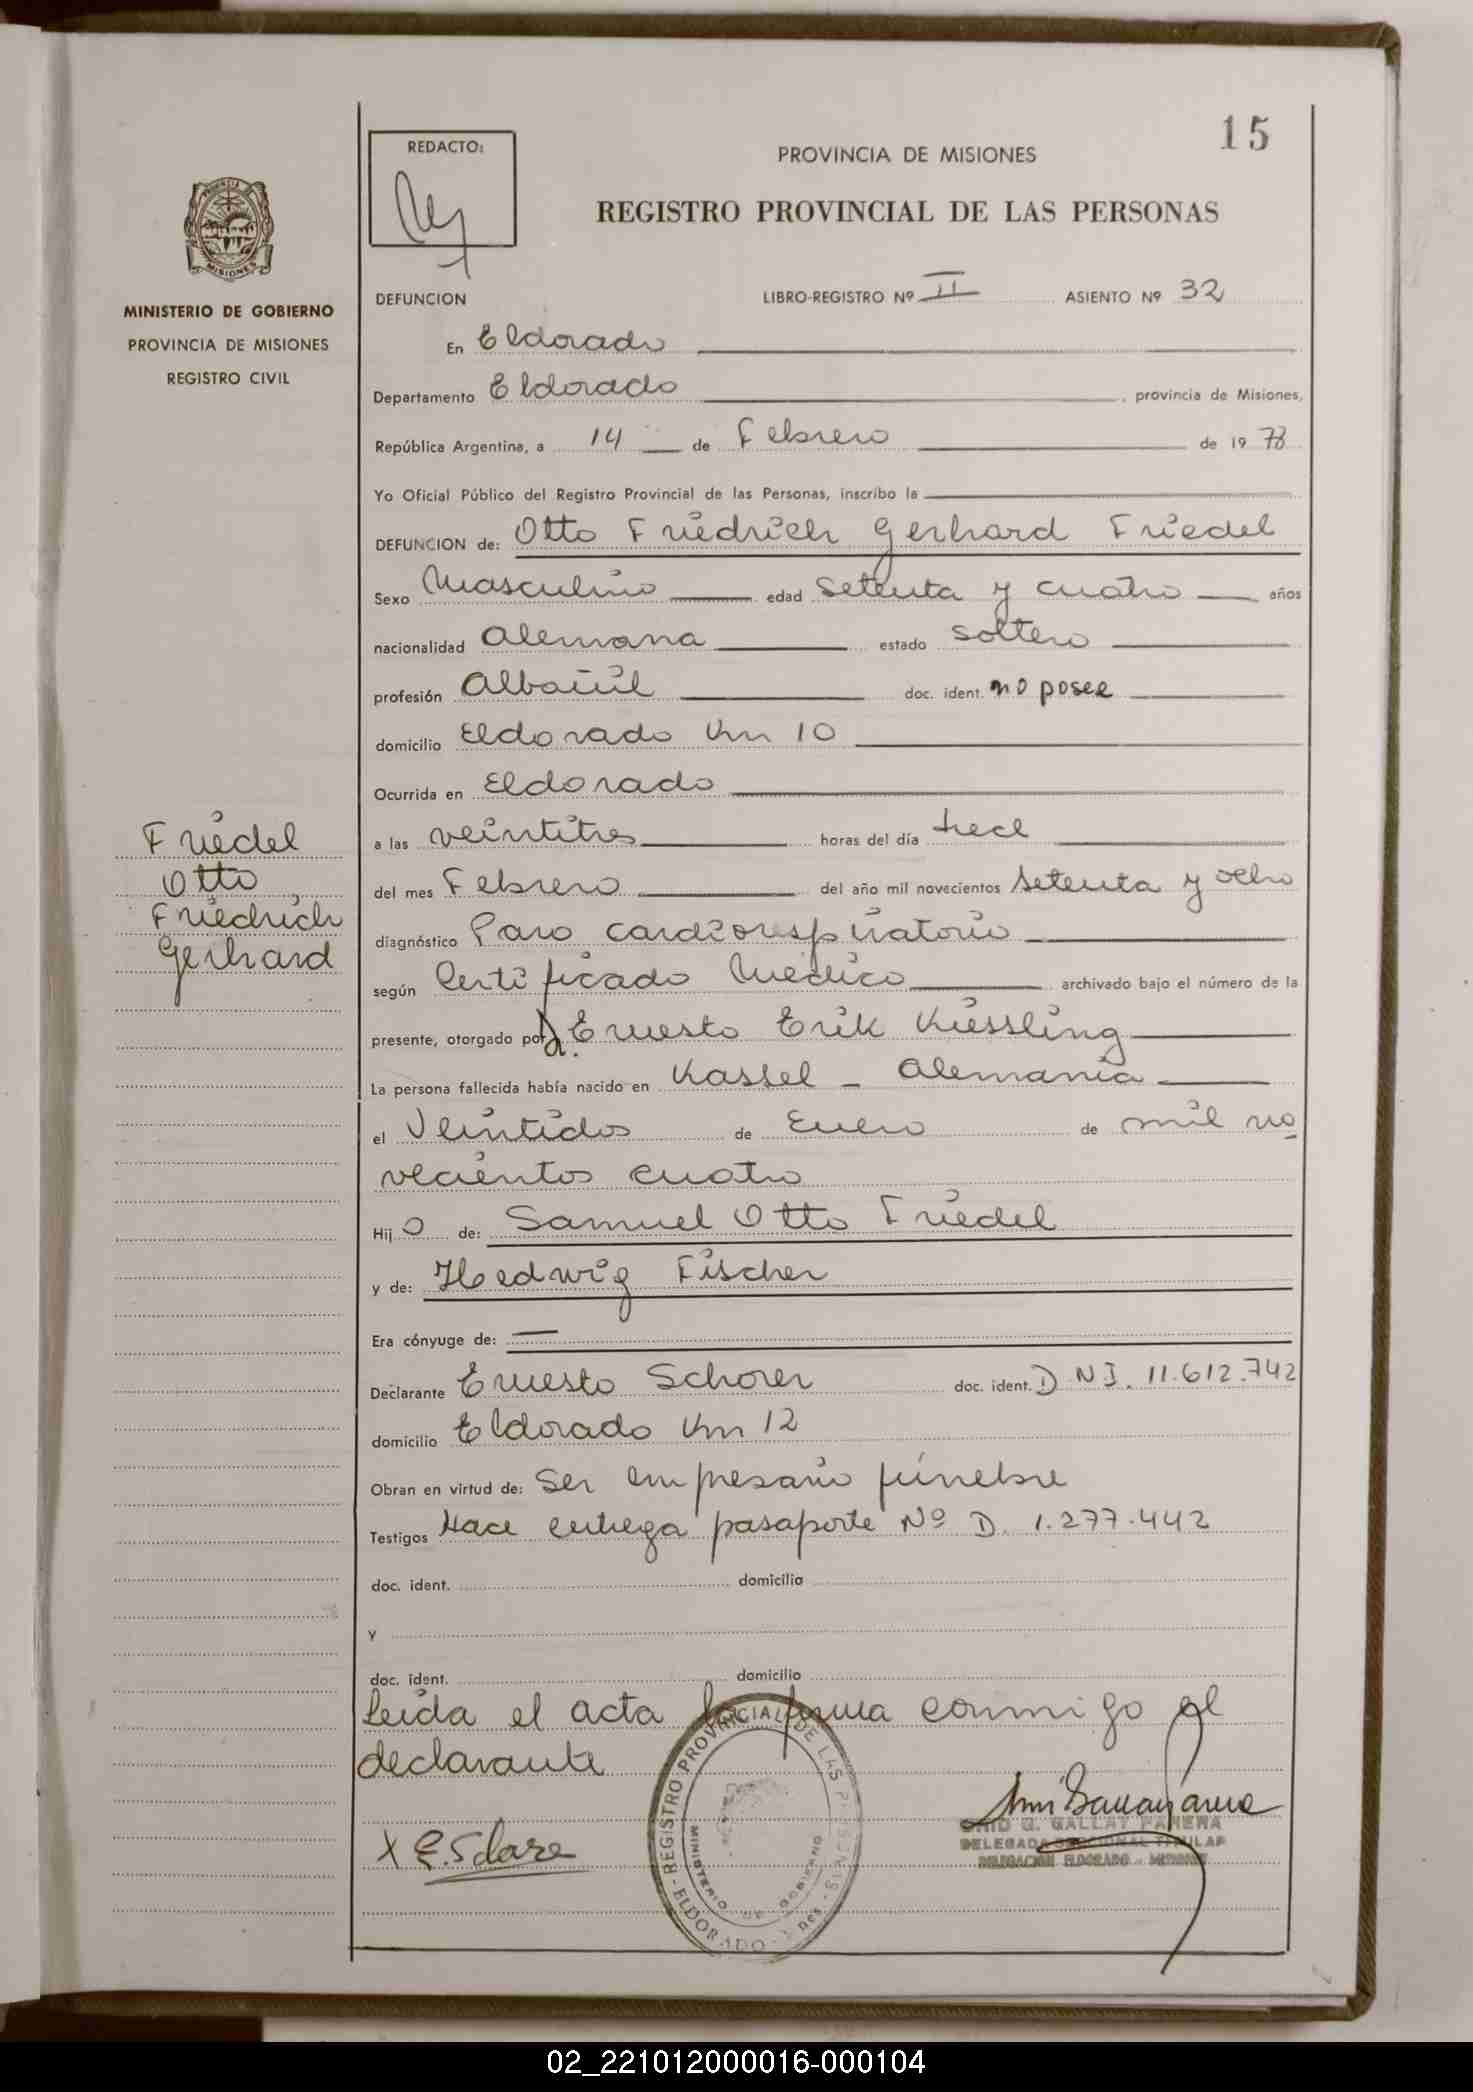 15
REDACTO:
PROVINCIA DE MISIONES
REGISTRO PROVINCIAL DE LAS PERSONAS
MISIONES
MINISTERIO DE GOBIERNO
PROVINCIA DE MISIONES
REGISTRO CIVIL
DEFUNCION LIBRO-REGISTRO Nº II ASIENTO Nº 32
En Eldorado
Departamento Eldorado, provincia de Misiones,
República Argentina, a 14 de Febrero de 1978
Yo Oficial Público del Registro Provincial de las Personas, inscribo la
DEFUNCION de: Otto Friedrich Gerhard Friedel
Sexo Masculino edad Setenta y cuatro años
nacionalidad Alemana estado soltero
profesión Albañil doc. ident. no posee
domicilio Eldorado Km 10
Ocurrida en Eldorado
a las veintitres horas del día trece
del mes Febrero del año mil novecientos setenta y ocho
diagnóstico Paro cardiorespiratorio
según Certificado Medico archivado bajo el número de la
presente, otorgado por Dr. Ernesto Erik Kiessling
La persona fallecida había nacido en Kassel - Alemania
el Veintidos de Enero de mil no
vecientos cuatro
Hijo de: Samuel Otto Friedel
y de: Hedwig Fischer
Era cónyuge de: —
Declarante Ernesto Schorer doc. ident. D N I. 11.612.742
domicilio Eldorado Km 12
Obran en virtud de: Ser empresario fúnebre
Testigos Hace entrega pasaporte Nº D. 1.277.442
doc. ident. domicilio
y
doc. ident. domicilio
Leida el acta la firma conmigo el
declarante
Friedel
Otto
Friedrich
Gerhard
X
REGISTRO PROVINCIAL DE LAS PERSONAS - ELDORADO
MINISTERIO DE GOBIERNO
G. GALLAY PARERA
DELEGADA SECCIONAL TITULAR
DELEGACION ELDORADO - MISIONES
02_221012000016-000104